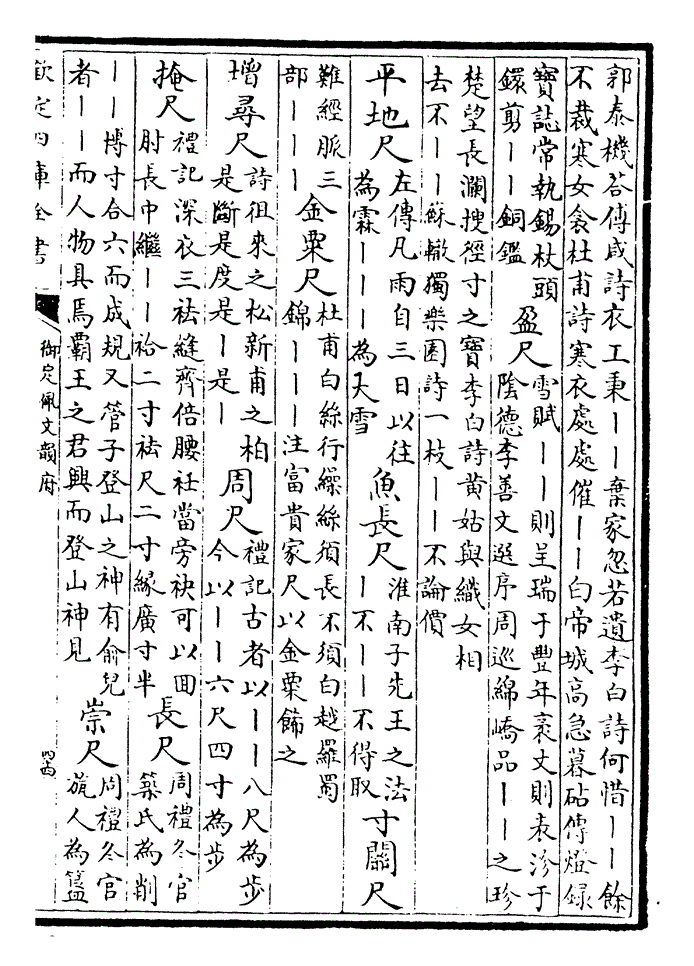 郭泰機答傅咸詩衣工秉丨丨棄家忽若遺李白詩何惜丨丨餘
不裁寒女衾杜甫詩寒衣處處催丨丨白帝城高急暮砧傳燈錄
寶誌常執錫杖頭
鐶剪丨丨銅鑑
盈尺
雪賦丨丨則呈瑞于豐年袤丈則表沴于
陰德李善文選序周巡綿嶠品丨丨之珍
楚望長瀾搜徑寸之寶李白詩黄姑與織女相
去不丨丨蘇轍獨樂園詩一枝丨丨不論價
平地尺
左傳凡雨自三日以往
為霖丨丨丨為大雪
魚長尺
淮南子先王之法
丨不丨丨不得取
寸關尺
難經脈三
部丨丨丨
金粟尺
杜甫白絲行繰絲須長不須白越羅蜀
錦丨丨丨注富貴家尺以金粟飾之
增尋尺
詩徂來之松新甫之柏
是斷是度是丨是丨
周尺
禮記古者以丨丨八尺為步
今以丨丨六尺四寸為步
掩尺
禮記深衣三袪縫齊倍腰衽當旁袂可以回
肘長中繼丨丨袷二寸袪尺二寸緣廣寸半
長尺
周禮冬官
築氏為削
丨丨博寸合六而成規又管子登山之神有俞兒
者丨丨而人物具焉霸王之君興而登山神見
崇尺
周禮冬官
旊人為簋
欽定四庫全書
御定佩文韻府